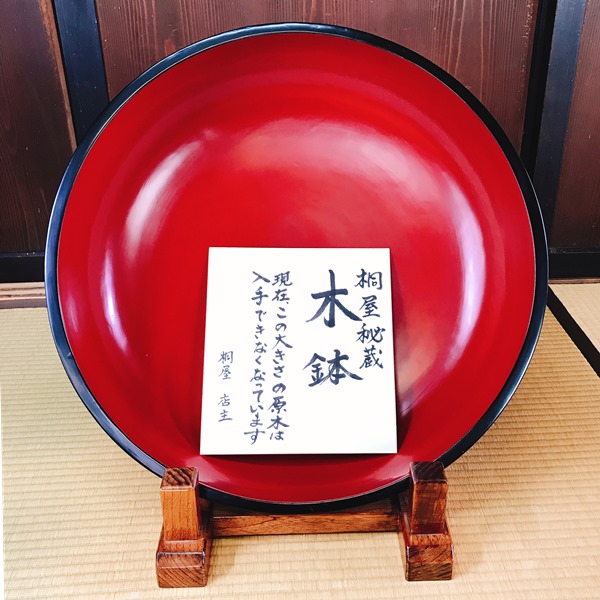 桐屋秘蔵
木鉢
現在、この大きさの原木は
入手できなくなっています
桐屋 店主